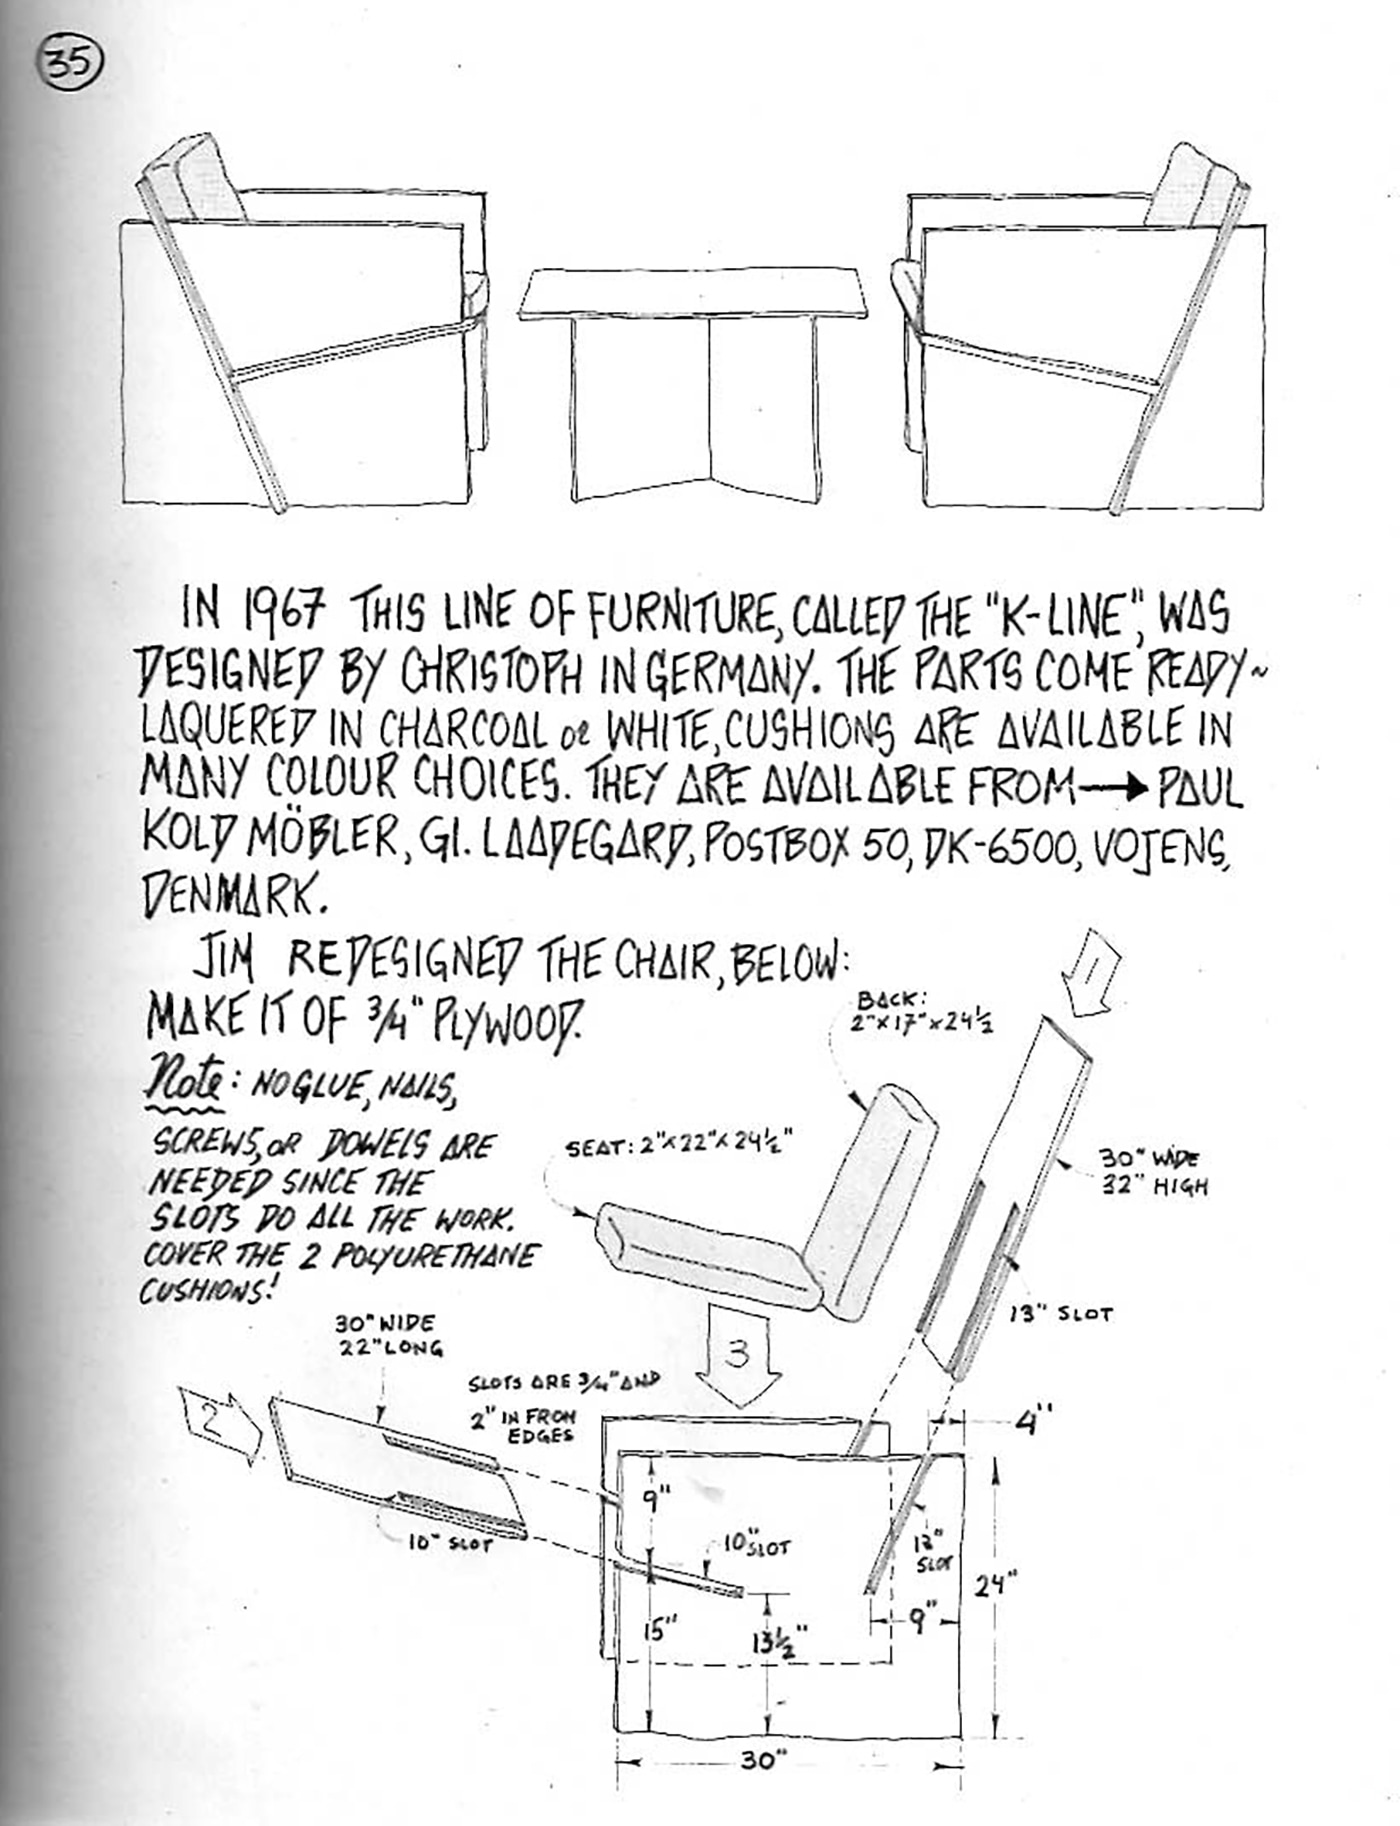 35
IN 1967 THIS LINE OF FURNITURE, CALLED THE "K-LINE", WAS
DESIGNED BY CHRISTOPH IN GERMANY. THE PARTS COME READY~
LAQUERED IN CHARCOAL or WHITE, CUSHIONS ARE AVAILABLE IN
MANY COLOUR CHOICES. THEY ARE AVAILABLE FROM → PAUL
KOLD MÖBLER, Gl. LAADEGARD, POSTBOX 50, DK-6500, VOJENS,
DENMARK.
JIM REDESIGNED THE CHAIR, BELOW:
MAKE IT OF 3/4" PLYWOOD.
Note: NO GLUE, NAILS,
SCREWS, OR DOWELS ARE
NEEDED SINCE THE
SLOTS DO ALL THE WORK.
COVER THE 2 POLYURETHANE
CUSHIONS!
BACK:
2"x17"x24½
1
SEAT: 2"x22"x24½"
30" WIDE
32" HIGH
13" SLOT
3
30" WIDE
22" LONG
2
10" SLOT
SLOTS ARE 3/4" AND
2" IN FROM
EDGES
4"
9"
10"
SLOT
13"
SLOT
24"
9"
15"
13½"
30"